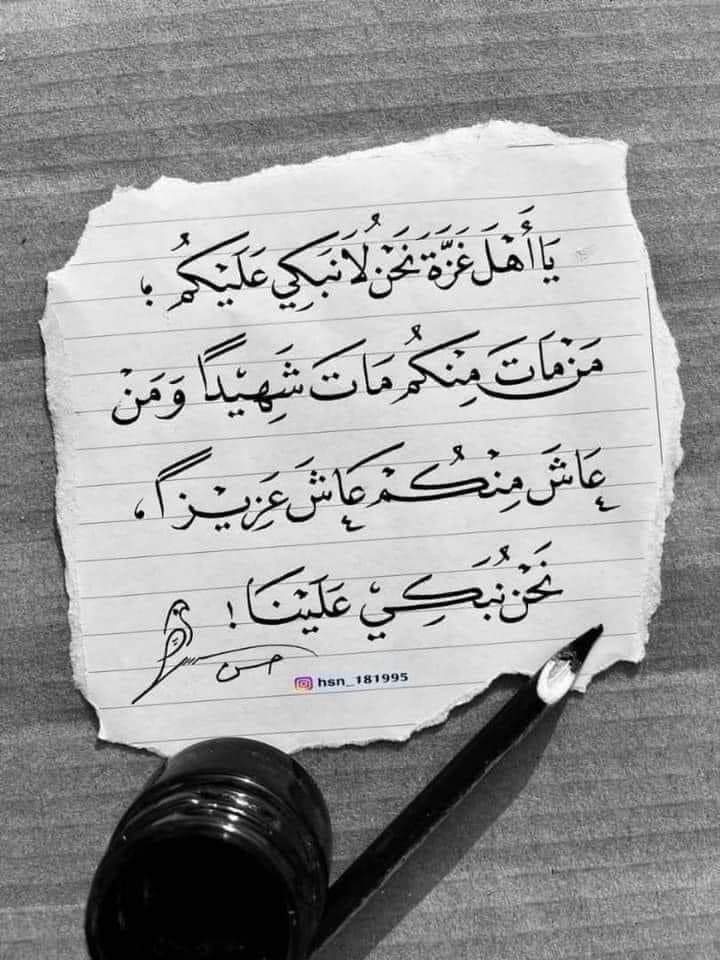 يَا أَهْلَ غَزَّةَ نَحْنُ لَا نَبْكِي عَلَيْكُمْ ؛
مَنْ مَاتَ مِنْكُمْ مَاتَ شَهِيْدًا وَمَنْ
عَاشَ مِنْكُمْ عَاشَ عَزِيْزًا ،
نَحْنُ نَبْكِيْ عَلَيْنَا !
حسن
hsn_181995